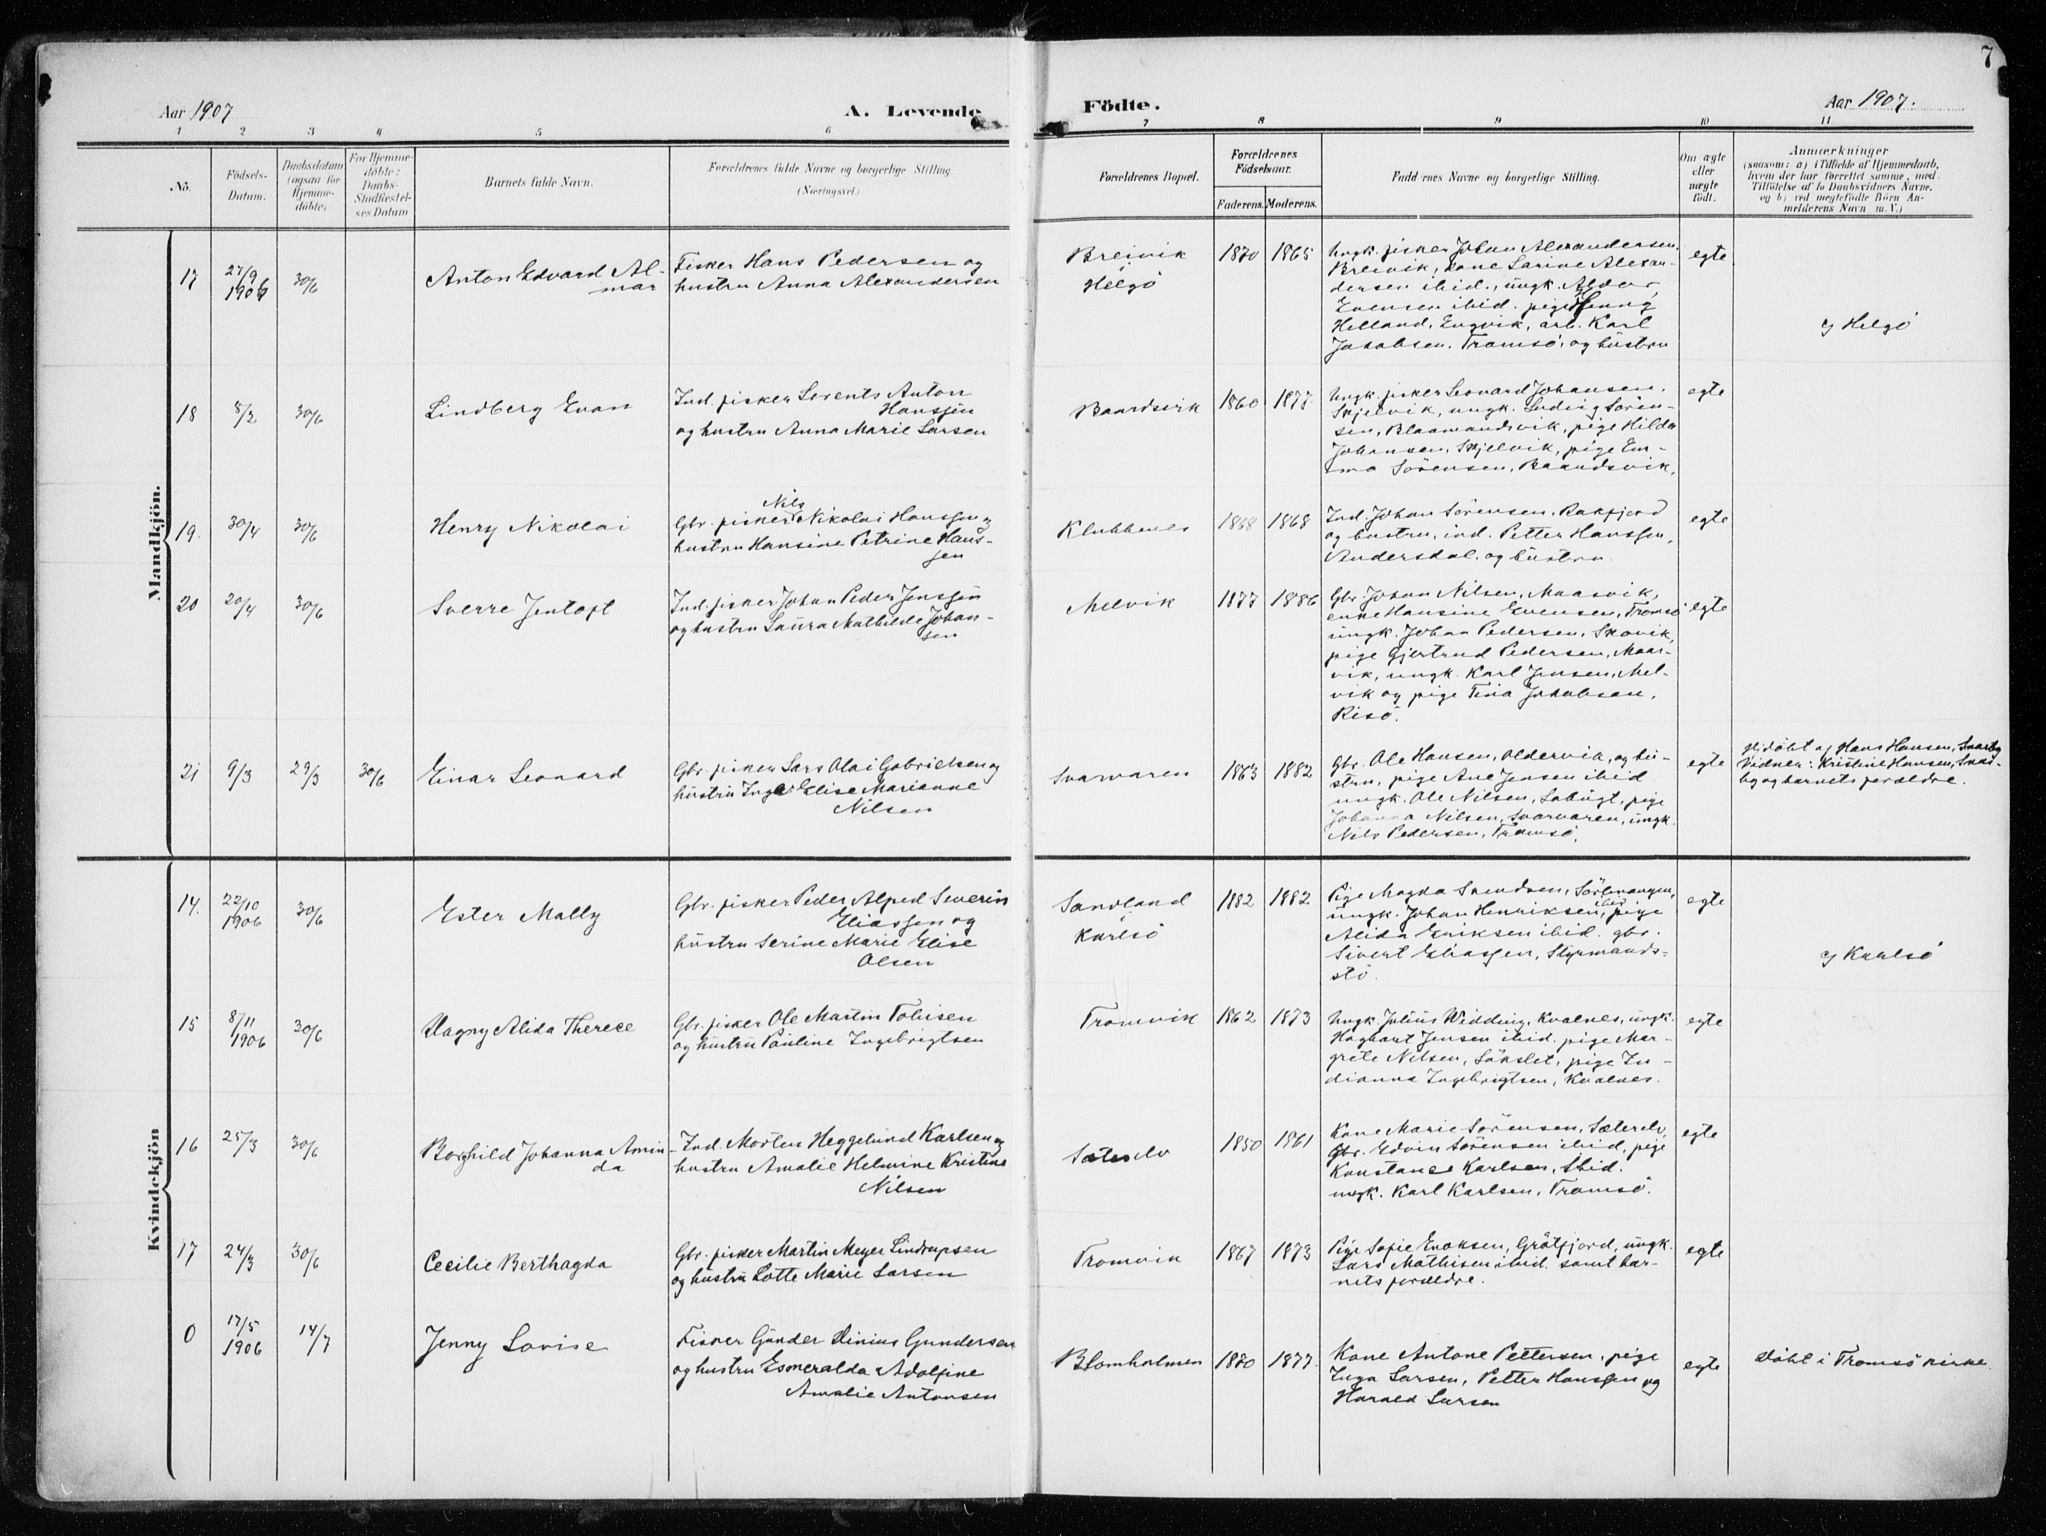 7
Aar 1907
A. Levende
Födte.
Aar 1907.
1 2 3 4 5 6 7 8 9 10 11
No.
Födsels-
Datum.
Daabsdatum
(ogsaa for
Hjemme-
döbte)
For Hjemme-
döbte:
Daabs-
Stadfæstel-
ses Datum
Barnets fulde Navn.
Forældrenes fulde Navne og borgerlige Stilling.
(Næringsvei.)
Forældrenes Bopæl.
Forældrenes
Födselsaar.
Faderens. Moderens.
Faddernes Navne og borgerlige Stilling.
Om ægte
eller
uægte
födt.
Anmærkninger
(saasom: a) i Tilfælde af Hjemmedaab,
hvem der har forrettet samme, med
Tilföielse af to Daabsvidners Navne.
og b) ved uegtefödte Börn An-
melderens Navn m. V.)
Mandkjön.
17
27/9
1906
30/6
Anton Edvard Al-
mar
Fisker Hans Pedersen og
hustru Anna Alexandersen
Breivik
Helgö
1870
1865
Ungk. fisker Johan Alexandersen,
Breivik, kone Sarine Alexan-
dersen ibid., ungk. Aldor
Evensen ibid. pige Jenny
Helland, Engvik, arb. Karl
Jakobsen, Tromsö, og hustru
egte
Helgö
18
8/2
30/6
Lindberg Evan
Ind. fisker Lorents Anton
Hanssen
og hustru Anna Marie Larsen
Baardsvik
1860
1877.
Ungk. fisker Leonard Johansen.
Skjelvik, ungk. Ludvig Sören-
sen, Blaamandsvik, pige Hilda
Johansen, Skjelvik, pige Em-
ma Sörensen, Baardsvik.
egte
19.
30/4
30/6
Henry Nikolai
Nils
Gbr. fisker Nikolai Hanssen og
hustru Hansine Petrine Hans-
sen
Klubbenes
1868
1868
Ind. Johan Sörensen, Rakfjord
og hustru, ind. Petter Hanssen,
Andersdal. og hustru.
egte
20
20/4
30/6
Sverre Jentoft
Ind. fisker Johan Peder Jenssen
og hustru Laura Mathilde Johan-
sen
Melvik
1877
1886
Gbr. Johan Nilsen, Maasvik,
enke Hansine Evensen, Tromsö
ungk. Johan Pedersen, Skovik,
pige Gjertrud Pedersen, Maas-
vik, ungk. Karl Jensen, Mel-
vik og pige Tina Jakobsen,
Risö.
egte
21
9/3
29/3
30/6
Einar Leonard
Gbr. fisker Lars Olai Gabrielsen og
hustru Inga Elise Marianne
Nilsen
Svarvaren
1863
1882
Gbr. Ole Hansen, Oldervik, og hu-
stru, pige Ane Jensen ibid
ungk. Ole Nilsen, Sobugt, pige
Johanna Nilsen, Svarvaren, ungk.
Nils Pedersen, Tromsö.
egte
Hjdöbt af Hans Hansen, Svarby
Vidner: Kristine Hansen, Svar-
by og barnets forældre.
Kvindekjön
14.
22/10
1906
30/6
Ester Mally
Gbr. fisker Peder Alfred Severin
Eliassen og
hustru Serine Marie Elise
Olsen
Sandland
Karlsö
1882
1882
Pige Magda Svendsen, Sörlenangen,
ungk. Johan Henriksen ibid, pige
Alida Eriksen ibid. gbr.
Sivert Eliassen, Styrmands-
stö.
egte
Karlsö
15
8/11
1906
30/6
Dagny Alida Therese
Gbr. fisker Ole Martin Tobisen
og hustru Pauline Ingebrigtsen
Tromvik
1862
1873
Ungk. Julius Widding, Kvalnes, ungk.
Hagbart Jensen ibid. pige Mar-
grete Nilsen, Sökslet, pige In-
dianna Ingebrigtsen, Kvalnes.
egte
16
25/3
30/6
Borghild Johanna Amin-
da
Ind. Morten Heggelund Karlsen og
hustru Amalie Helmine Kristine
Nilsen
Sæterelv
1850
1861
Kone Marie Sörensen, Sæterelv,
gbr. Edvin Sörensen ibid, pige
Konstance Karlsen, ibid.
ungk. Karl Karlsen, Tromsö.
egte
17
24/3
30/6
Cecilie Berthagda
Gbr. fisker Martin Meyer Lindrupsen
og hustru Lotte Marie Larsen
Tromvik
1867
1873
Pige Sofie Enoksen, Grötfjord, ungk.
Lars Mathisen ibid. samt bar-
nets forældre.
egte
0
17/5
1906
14/7
Jenny Lovise
Fisker Gunder Dinius Gundersen
og hustru Esmeralda Adolfine
Amalie Antonsen
Blomholmen
1870
1877.
Kone Antone Pettersen, pige
Inga Larsen, Petter Hanssen og
Harald Larsen
egte
Döbt i Tromsö kirke.